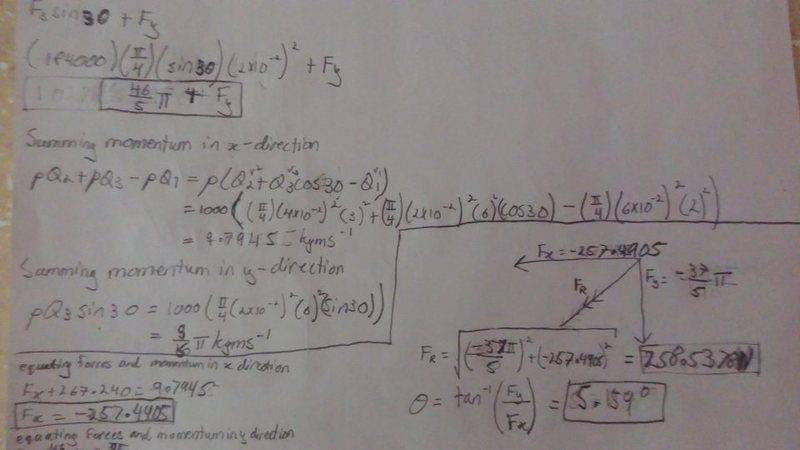 F₃ sin30 + Fy
(184000)(π/4)(sin30)(2x10⁻²)² + Fy
46/5 π + Fy
Summing momentum in x-direction
ρQ₂ + ρQ₃ - ρQ₁ = ρ(Q₂v₂ + Q₃v₃cos30 - Q₁v₁)
= 1000((π/4)(4x10⁻²)²(3)² + (π/4)(2x10⁻²)²(6)²(cos30) - (π/4)(6x10⁻²)²(2)²)
= 9.79455 kgms⁻¹
Summing momentum in y-direction
ρQ₃ sin30 = 1000(π/4(2x10⁻²)²(6)²(sin30))
= 9/5 π kgms⁻¹
equating forces and momentum in x direction
Fx + 267.240 = 9.7945
Fx = -257.4905
equating forces and momentum in y direction
Fx = -257.4905
FR
Fy = -37/5 π
FR = √((-37π/5)² + (-257.4905)²) = 258.537N
θ = tan⁻¹(Fy/Fx) = 5.159°